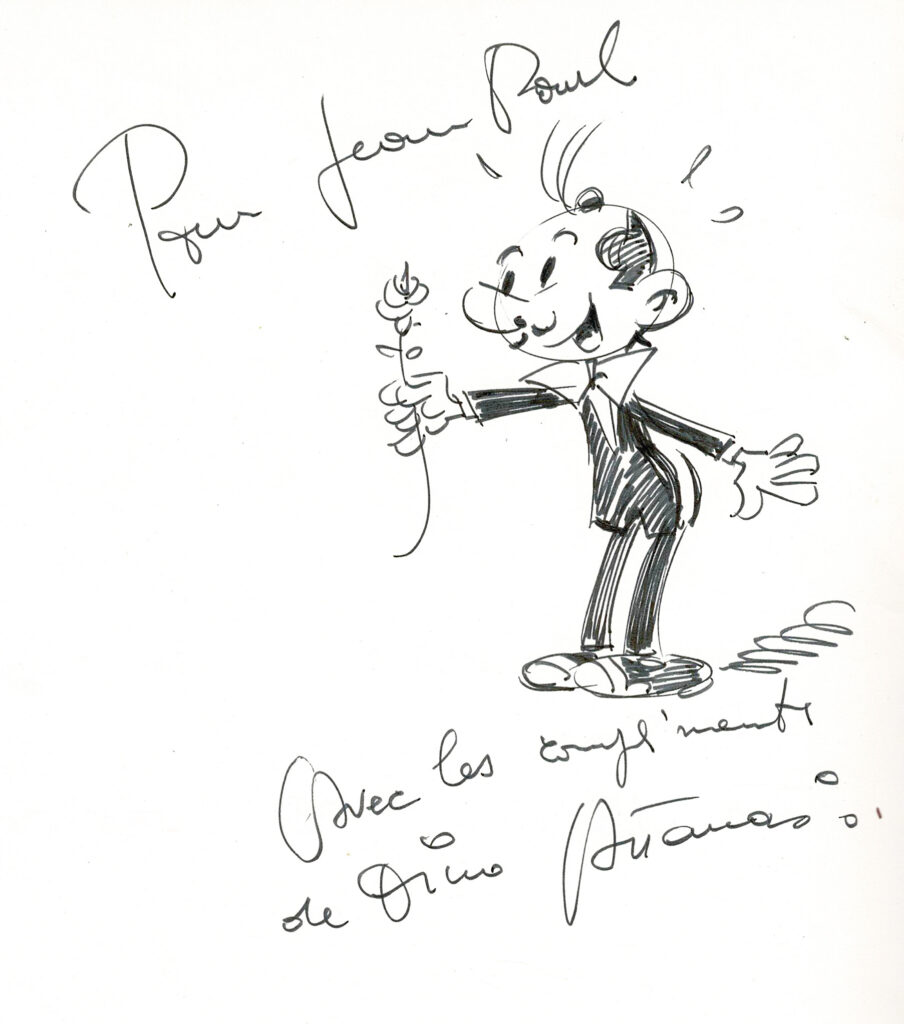 Pour Jean Paul
Avec les compliments
de Dino Attanasio.